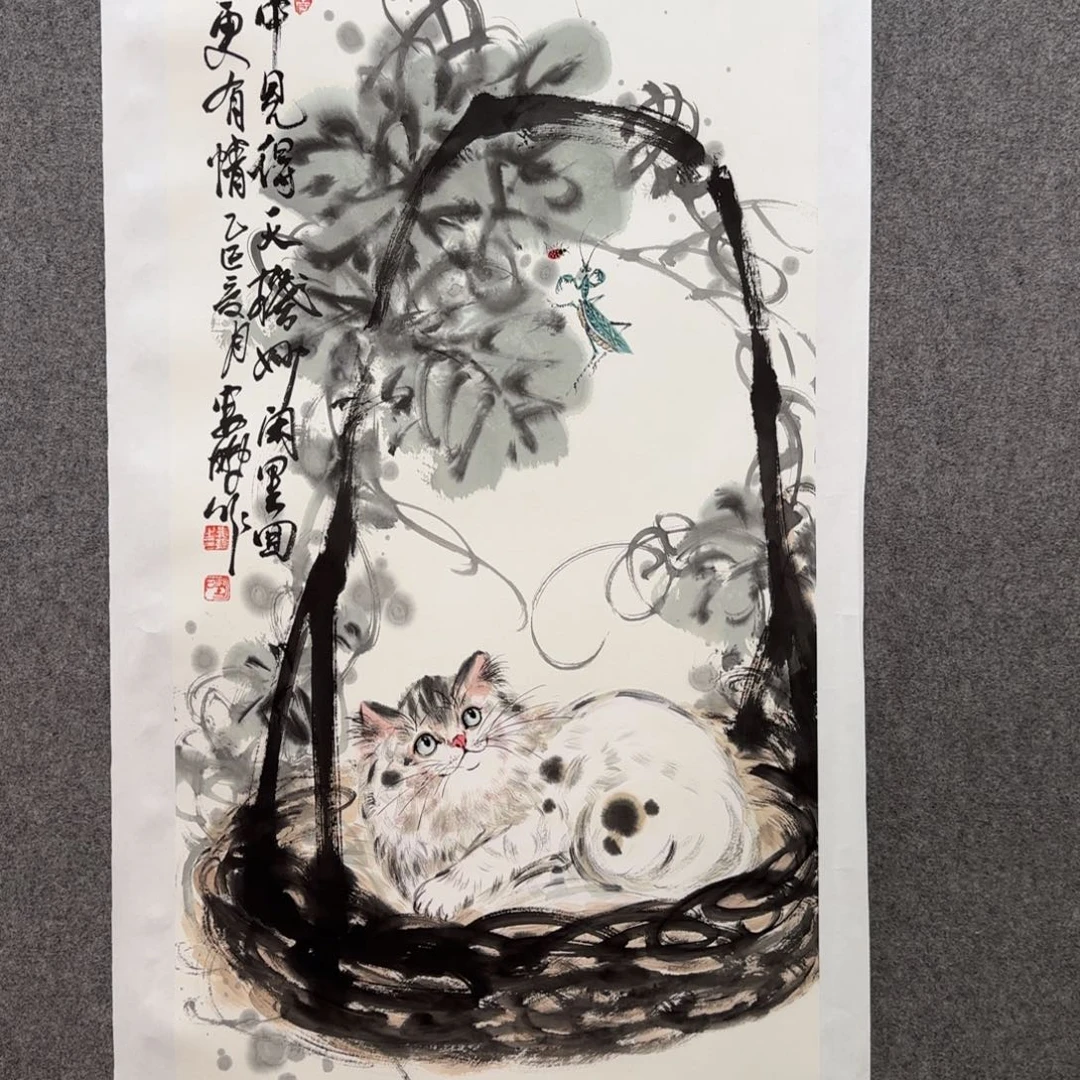 中見得天機妙閑里回
更有情
乙巳夏月
作